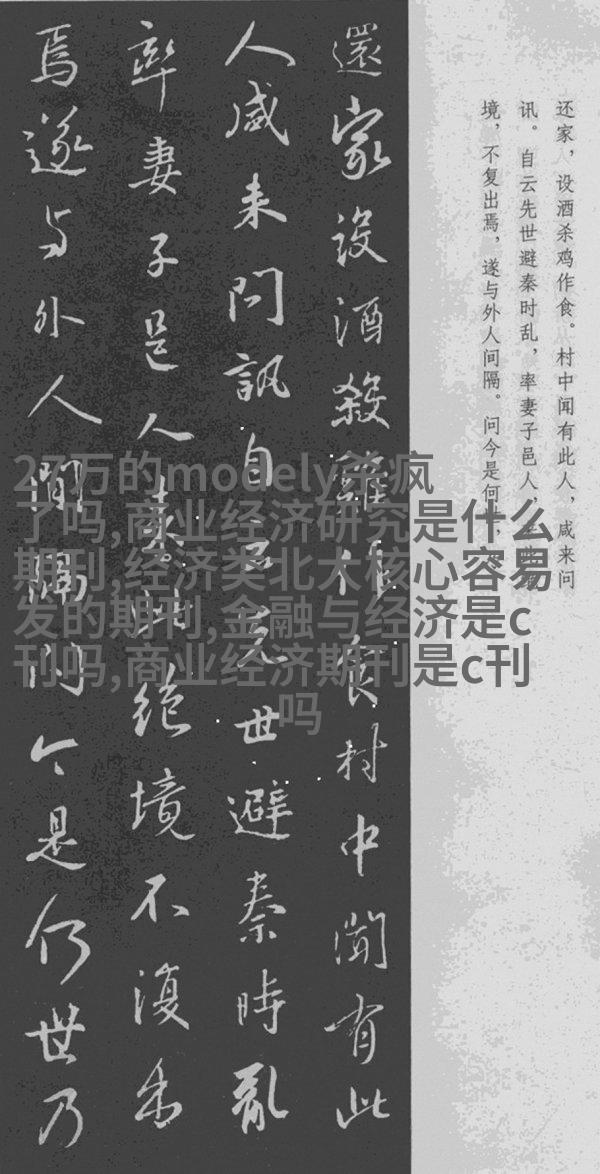 還家設酒殺雞作食村中聞有此
人咸来問訊自云先世避秦時亂
率妻子邑人来此絶境不復出
焉遂与外人間隔問今是何世乃
还家，设酒杀鸡作食。村中闻有此人，咸来问
讯。自云先世避秦时乱，率妻子邑人，
境，不复出焉，遂与外人间隔。问今是何
27万的modely杀疯
了吗,商业经济研究是什么
期刊,经济类北大核心容易
发的期刊,金融与经济是c
刊吗,商业经济期刊是c刊
吗